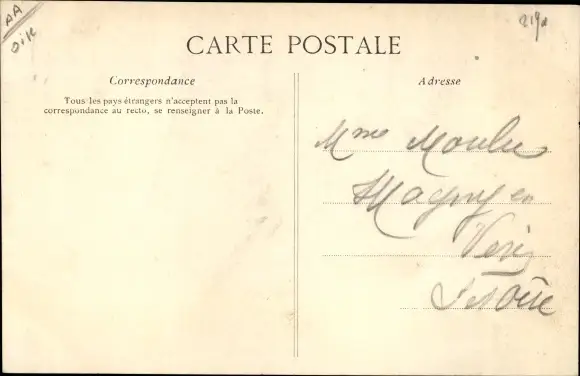 AA
Oise
219
CARTE POSTALE
Correspondance
Tous les pays étrangers n'acceptent pas la
correspondance au recto, se renseigner à la Poste.
Adresse
Mme
Magny en
Vexin